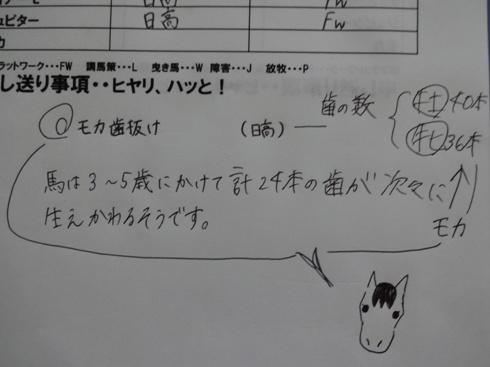 日高
ュピター 日高 FW
カ
ラットワーク・・・FW 調馬策・・・L 曳き馬・・・W 障害・・・J 放牧・・・P
し送り事項・・ヒヤリ、ハッと!
○モカ歯抜け (日高) ― 歯の数 牡 40本
牝 36本
馬は3~5歳にかけて計24本の歯が次々に
生えかわるそうです。
モカ